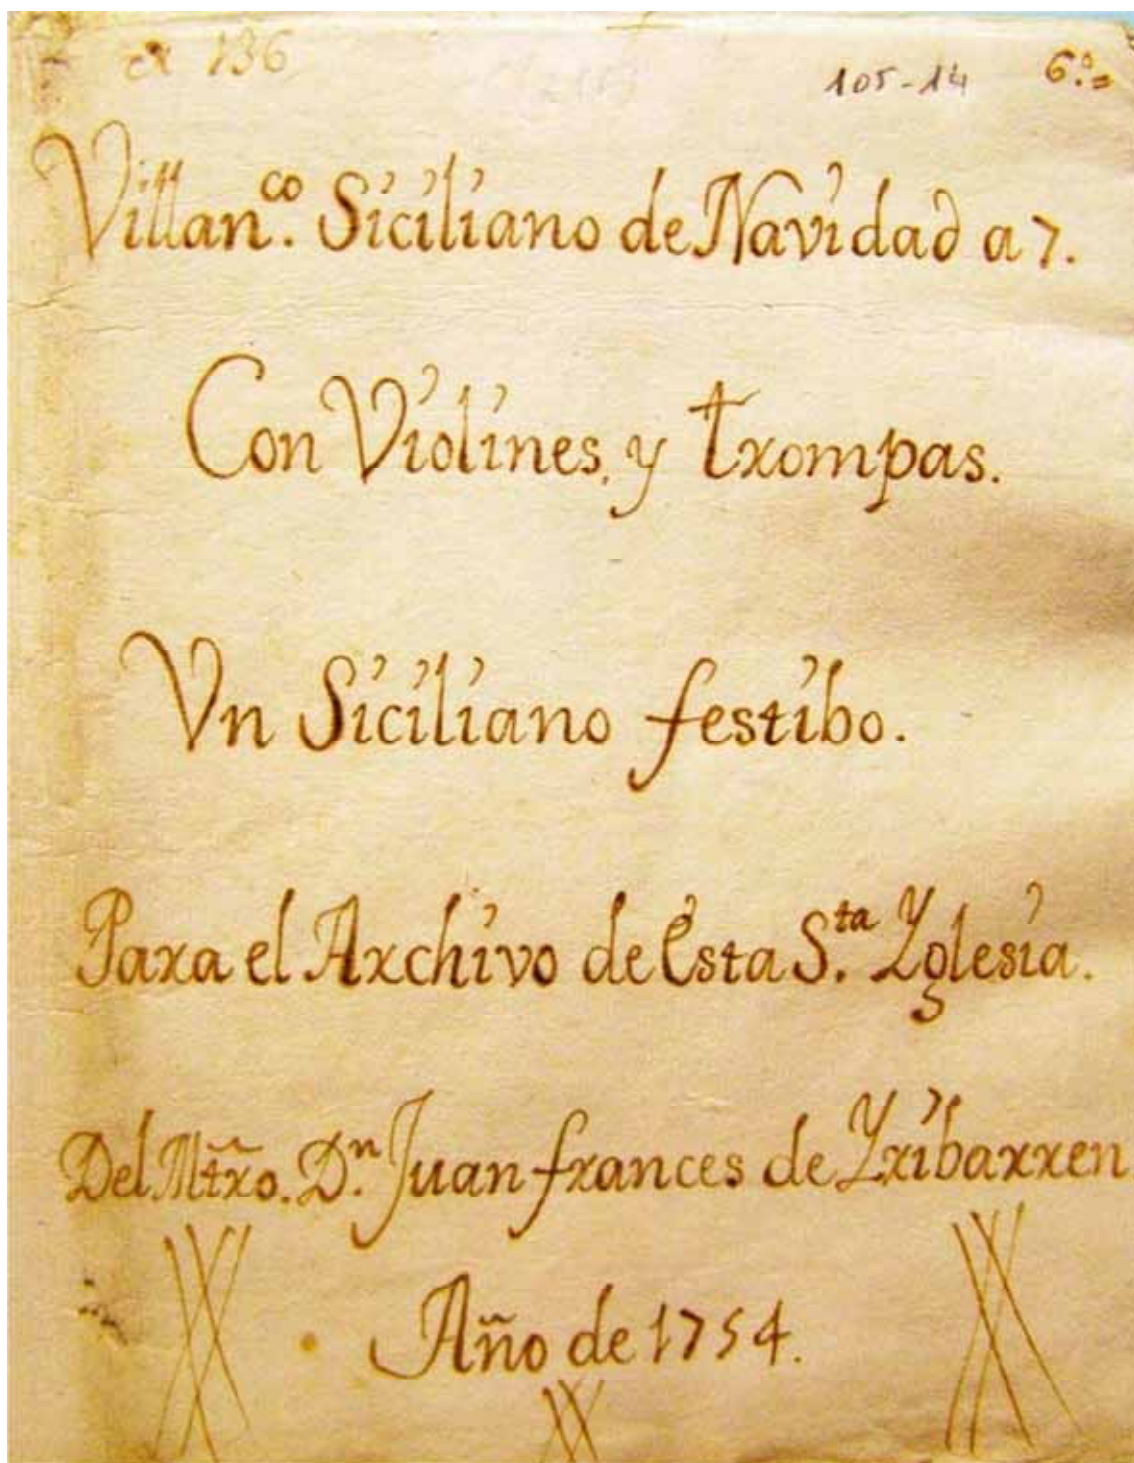 136
105-14 6.º=
Villan.co Siciliano de Navidad a 7.
Con Violines, y trompas.
Vn Siciliano festibo.
Para el Archivo de Esta S.ta Yglesia.
Del Mtr̃o. D.n Juan frances de Yribarren
Año de 1754.